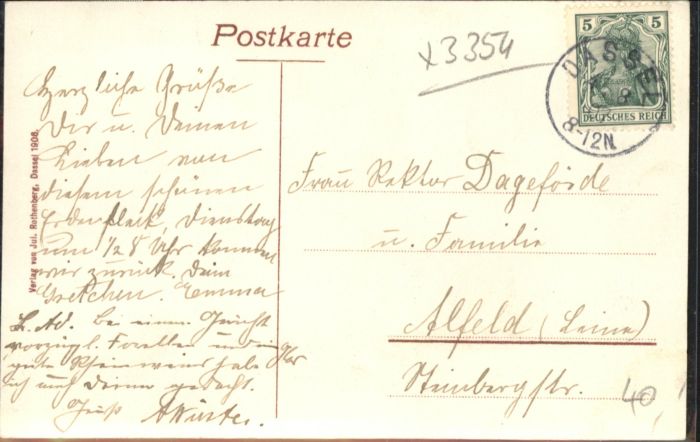 Postkarte
x3354
5 5
DEUTSCHES REICH
DASSEL
8
8-12N
Verlag von Jul. Rothenberg, Dassel 1908.
Herzliche Grüße
Dir u. Deinen
Lieben von
diesem schönen
Erdenfleck, Dienstag
um 1/2 8 Uhr kommen
wir zurück. Dein
Gretchen. Emma
Frau Rektor Dageförde
u. Familie
Alfeld (Leine)
Steinbergstr.
40
L. Ad. Bei einem Gericht
vorzügl. Forellen und
gute Rheinweins habe
ich auch Deiner gedacht.
Gruß